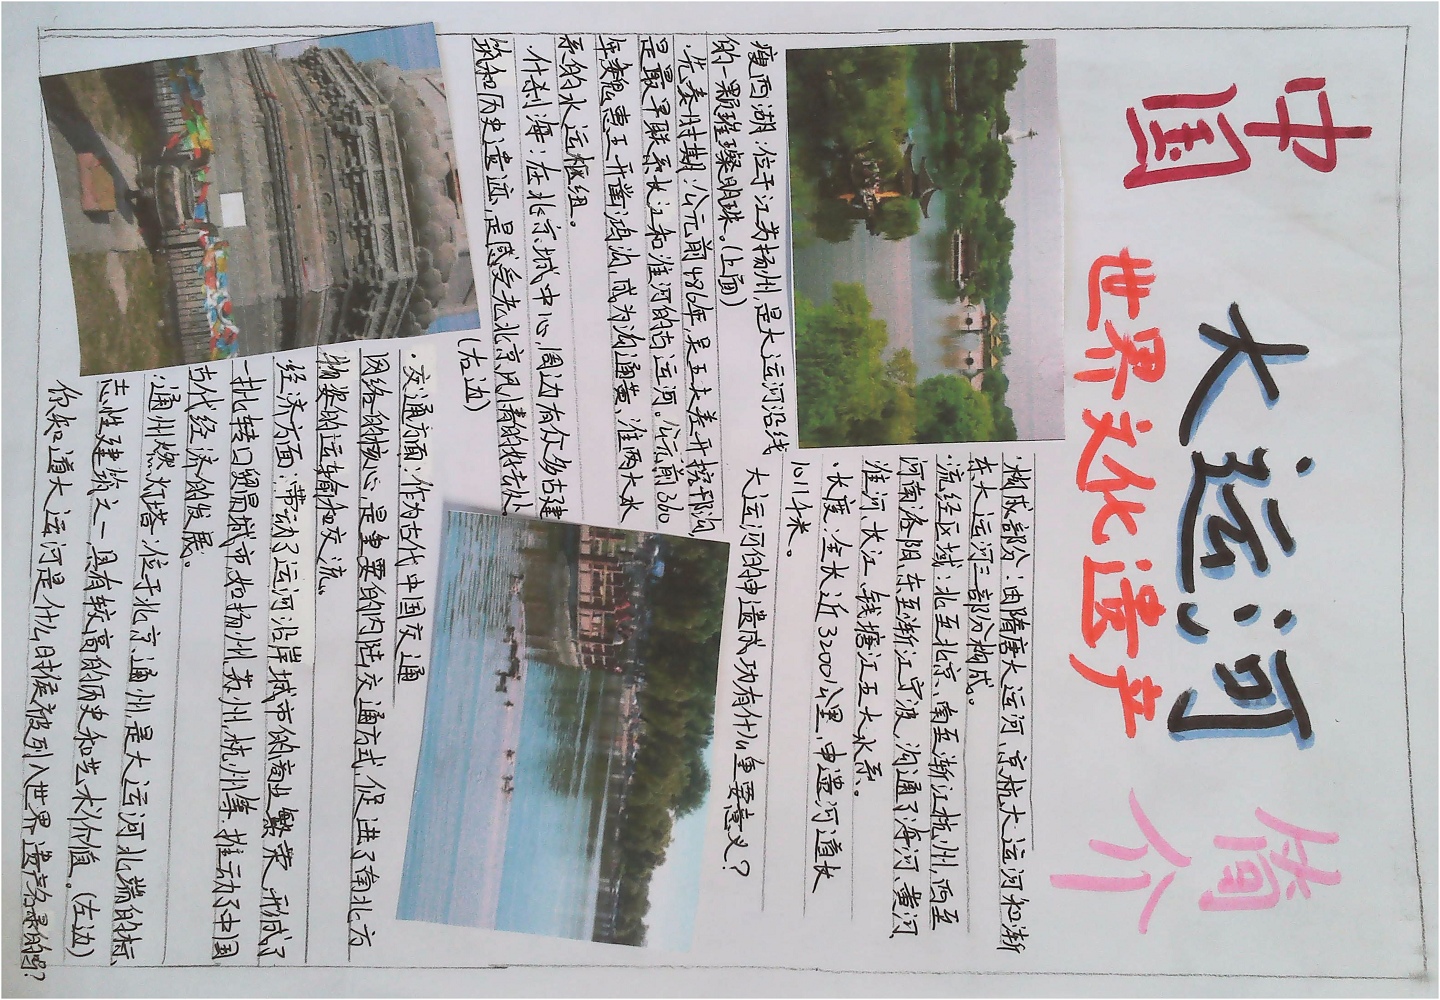 中国
大运河
世界文化遗产
简介
·构成部分：由隋唐大运河,京杭大运河和浙
东大运河三部分构成。
·流经区域：北至北京,南至浙江杭州,西至
河南洛阳,东至浙江宁波,沟通了海河、黄河、
淮河、长江、钱塘江五大水系。
·长度：全长近3200公里,申遗河道长
1011千米。
大运河的申遗成功有什么重要意义？
瘦西湖：位于江苏扬州,是大运河沿线
的一颗璀璨明珠。(上面)
·先秦时期：公元前486年,吴王夫差开挖邗沟,
是最早联系长江和淮河的古运河。公元前360
年,魏惠王开凿鸿沟,成为沟通黄、淮两大水
系的水运枢纽。
·什刹海：在北京城中心,周边有众多古建
筑和历史遗迹,是感受老北京风情的好去处。
(右边)
·交通方面：作为古代中国交通
网络的核心,是重要的内陆交通方式,促进了南北方
物资的运输和交流。
经济方面：带动了运河沿岸城市的商业繁荣,形成了
一批转口贸易城市,如扬州、苏州、杭州等,推动了中国
古代经济的发展。
·通州燃灯塔：位于北京通州,是大运河北端的标
志性建筑之一,具有较高的历史和艺术价值。(左边)
你知道大运河是什么时候被列入世界遗产名录的吗？